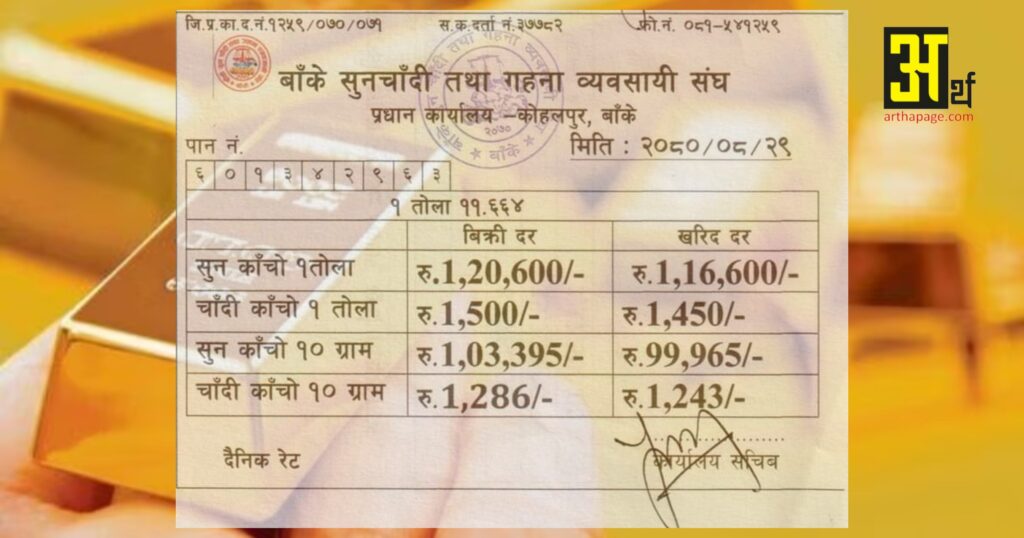 जि.प्र.का.द.नं.१२५९/०७०/०७१ स.क.दर्ता नं.३७७८२ फो.नं. ०८१-५४१२५९
अर्थ
arthapage.com
बाँके सुनचाँदी तथा गहना व्यवसायी संघ
प्रधान कार्यालय -कोहलपुर, बाँके
पान नं. मिति : २०८०/०८/२९
६ ० १ ३ ४ २ ९ ६ ३
१ तोला ११.६६४
बिक्री दर खरिद दर
सुन काँचो १तोला रु.1,20,600/- रु.1,16,600/-
चाँदी काँचो १ तोला रु.1,500/- रु.1,450/-
सुन काँचो १० ग्राम रु.1,03,395/- रु.99,965/-
चाँदी काँचो १० ग्राम रु.1,286/- रु.1,243/-
दैनिक रेट कार्यालय सचिब